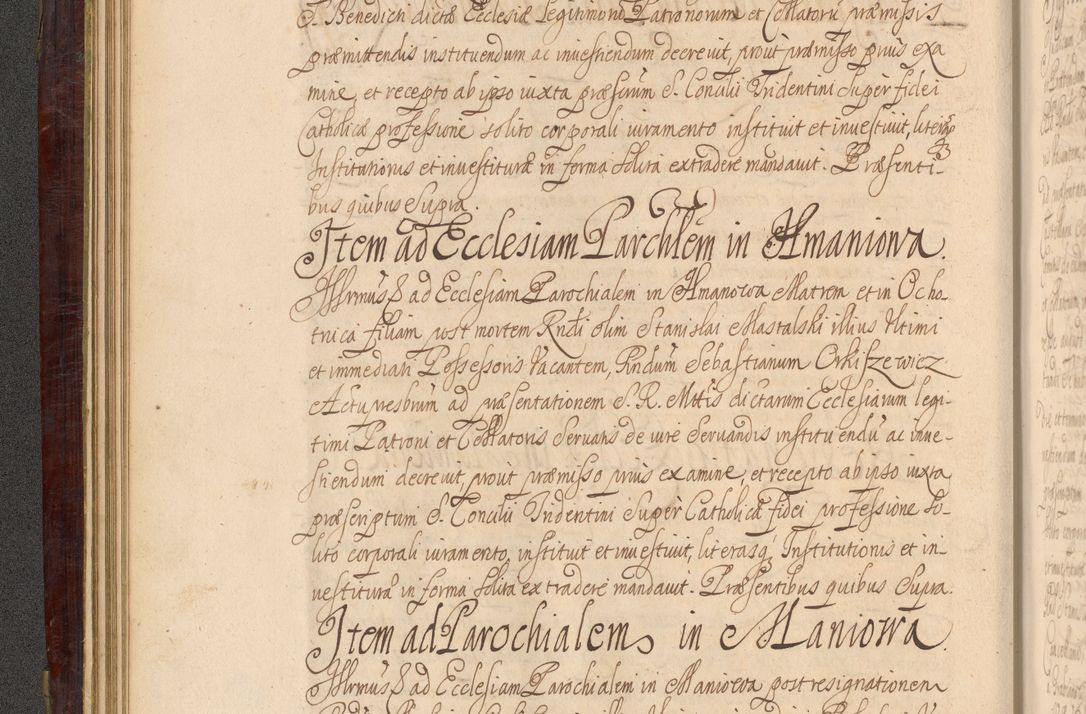 S. Benedicti dictæ Ecclesiæ legitimorũ Patronorum et Collatorũ præmissis
præmittendis instituendum ac investiendum decrevit, prout præmisso prius exa
mine, et recepto ab ipso iuxta præscrium S. Concilii Tridentini super fidei
Catholicæ professione solito corporali iuramento instituit et investivit, literasq3
Institutionis et investituræ in forma solita extradere mandavit. Præsenti-
bus quibus Supra.
Item ad Ecclesiam Parchlem in Hmaniowa.
Illrmus ad Ecclesiam Parochialem in Hmanowa Matrem et in Ocho-
tnica filiam post mortem Rndi olim Stanislai Mastalski illius Ultimi
et immediati Possessoris Vacantem, Rndum Sebastianum Orkiszewicz
Actu præsbrum ad præsentationem S. R. Mttis dictarum Ecclesiarum legi-
timi Patroni et Collatoris servatis de iure servandis instituendũ ac inve-
stiendum decrevit, prout præmisso prius examine, et recepto ab ipso iuxta
præscriptum S. Concilii Tridentini super Catholicæ fidei professione so-
lito corporali iuramento, instituit et investivit, literasq; Institutionis et in-
vestituræ in forma solita extradere mandavit. Præsentibus quibus Supra.
Item ad Parochialem in Maniowa.
Illrmus ad Ecclesiam Parochialem in Maniowa post resignationem